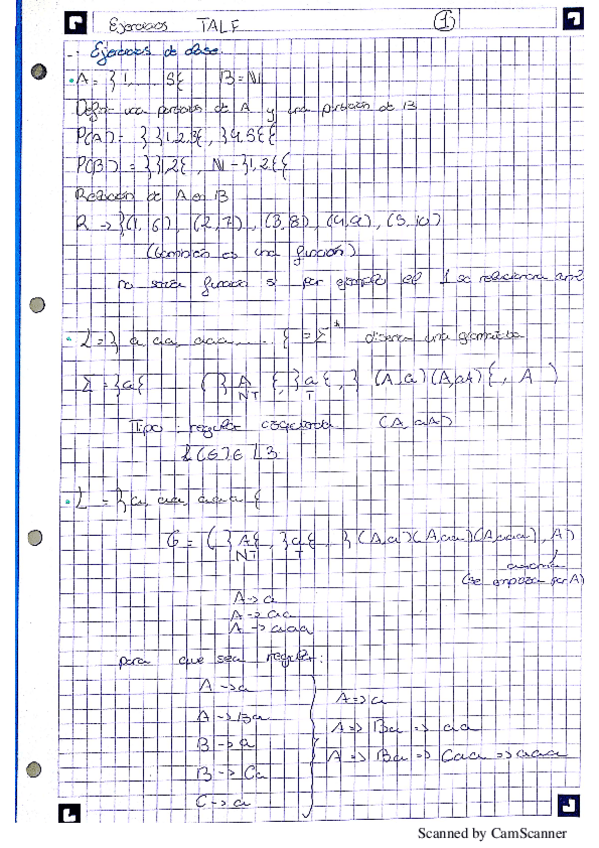 Ejercicios TALF 1
-. Ejercicios de clase.
• A = }1, ... 5{ B = N
Definir una particion de A y una particion de B
P(A) = }}1,2,3{, }4,5{{
P(B) = }}1,2{, N-}1,2{{
Relacion de A en B
R → }(1,6), (2,7), (3,8), (4,9), (5,10)
(tambien es una función)
no seria funcion si por ejemplo el 1 se relaciona
• L = } a, aa, aaa, ..... { = Σ* disena una gramatica
Σ = }a{ ( }A{, }a{, } (A,a)(A,aA){, A )
NT T
Tipo: regular izquierda (A, aA)
L(G) 3
• L = } a, aa, aaa {
G = ( }A{, }a{, }(A,a)(A,aa)(A,aaa), A)
NT T
axioma
(se empieza por A)
A → a
A → aa
A → aaa
para que sea regular:
A → a
A → Ba
B → a
B → Ca
C → a
A => a
A => Ba => aa
A => Ba => Caa => aaa
Scanned by CamScanner